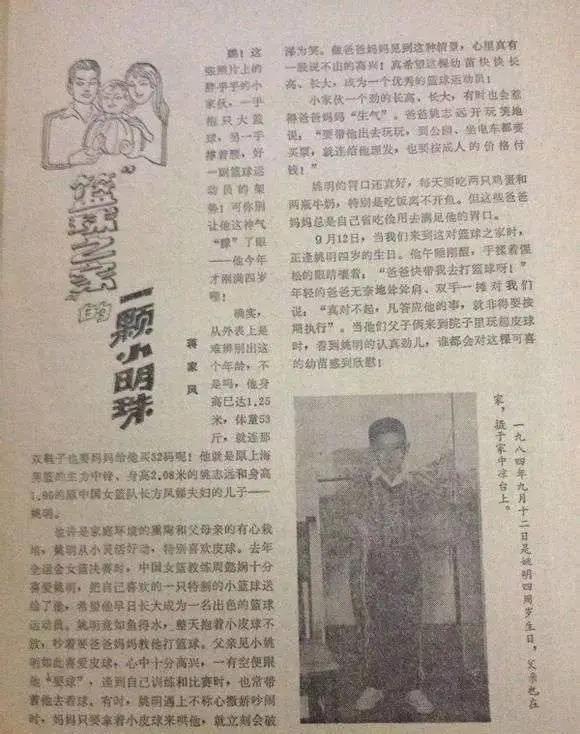 “篮球之家”的
一颗小明珠
蒋家风
瞧！这
张照片上的
胖乎乎的小
家伙，一手
抱只大篮
球，另一手
撑着腰，好
一副篮球运
动员的架
势！可你别
让他这神气
“朦”了眼
——他今年
才刚满四岁
哩！
确实，
从外表上是
难辨别出这
个年龄，不
是吗，他身
高已达1.25
米，体重53
斤，就连那
双鞋子也要妈妈给他买32码呢！他就是原上海
男篮的主力中锋、身高2.08米的姚志远和身高
1.86的原中国女篮队长方凤娣夫妇的儿子——
姚明。
也许是家庭环境的熏陶和父母亲的有心栽
培，姚明从小灵活好动，特别喜欢皮球。去年
全运会女篮决赛时，中国女篮教练周懿娴十分
喜爱姚明，把自己喜欢的一只特制的小篮球送
给了他，希望他早日长大成为一名出色的篮球
运动员。姚明竟如鱼得水，整天抱着小皮球不
放，吵着要爸爸妈妈教他打篮球。父亲见小姚
明如此喜爱皮球，心中十分高兴，一有空便跟
他“耍球”，逢到自己训练和比赛时，也常带
着他去看球。有时，姚明遇上不称心撒娇吵闹
时，妈妈只要拿着小皮球来哄他，就立刻会破
涕为笑。做爸爸妈妈见到这种情景，心里真有
一股说不出的高兴！真希望这棵幼苗快快长
高、长大，成为一个优秀的篮球运动员！
小家伙一个劲的长高、长大，有时也会惹
得爸爸妈妈“生气”。爸爸姚志远开玩笑地
说：“要带他出去玩玩，到公园、坐电车都要
买票，就连给他理发，也要按成人的价格付
钱！”
姚明的胃口还真好，每天须吃两只鸡蛋和
两瓶牛奶，特别是吃饭离不开鱼。但这些爸爸
妈妈总是自己省吃俭用去满足他的胃口。
9月12日，当我们来到这对篮球之家时，
正逢姚明四岁的生日。他午睡刚醒，手揉着惺
松的眼睛嚷着，“爸爸快带我去打篮球呀！”
年轻的爸爸无奈地耸耸肩、双手一摊对我们
说：“真对不起，凡答应他的事，就非得要按
期执行”。当他们父子俩来到院子里玩起皮球
时，看到姚明的认真劲儿，谁都会对这棵可喜
的幼苗感到欣慰！
一九八四年九月十二日是姚明四周岁生日，父亲也在
家，摄于家中凉台上。